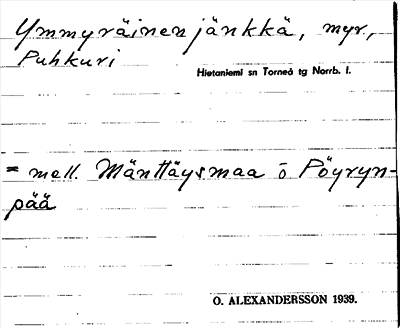 Ymmyräinenjänkkä, myr,
Puhkuri
Hietaniemi sn Torneå tg Norrb. l.
= mell. Mänttäysmaa o Pöyryn-
pää
O. ALEXANDERSSON 1939.